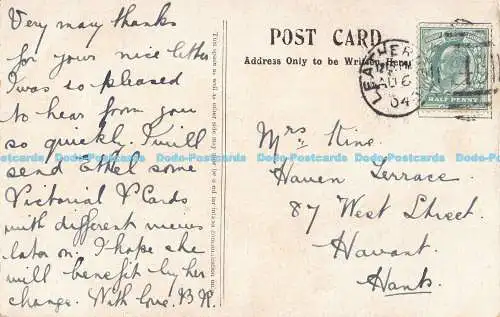 Very many thanks
for your nice letter
I was so pleased
to hear from you
so quickly. I will
send Ethel some
Pictorial P Cards
with different views
later on. I hope she
will benefit by her
change. With love. B R.
This space as well as other side may be used for inland communication
POST CARD.
Address Only to be Written Here.
LEATHER
AU 6
04
HALF PENNY
Mrs Hine.
Haven Terrace.
87 West Street.
Havant.
Hants.
Dodo-Postcards Dodo-Postcards Dodo-Postcards Dodo-Postcards